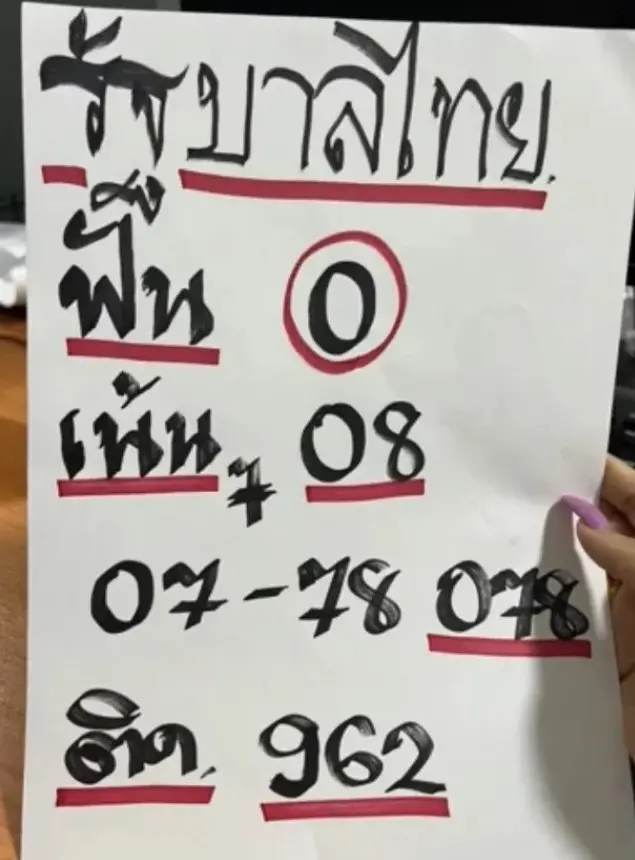 รัฐบาลไทย.
ฟัน 0
เน้นๆ 08
07-78 078
ติด. 962